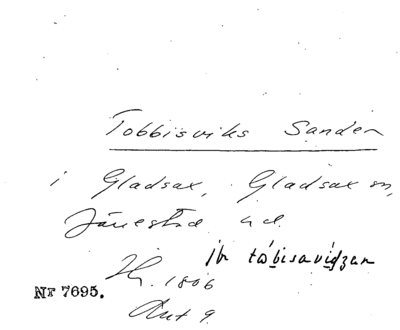 Tobbisviks Sanden
i Gladsax, Gladsax sn,
Järrestad hd.
ib tɷbisavidzan
1806
Nr 7695.
Akt 9